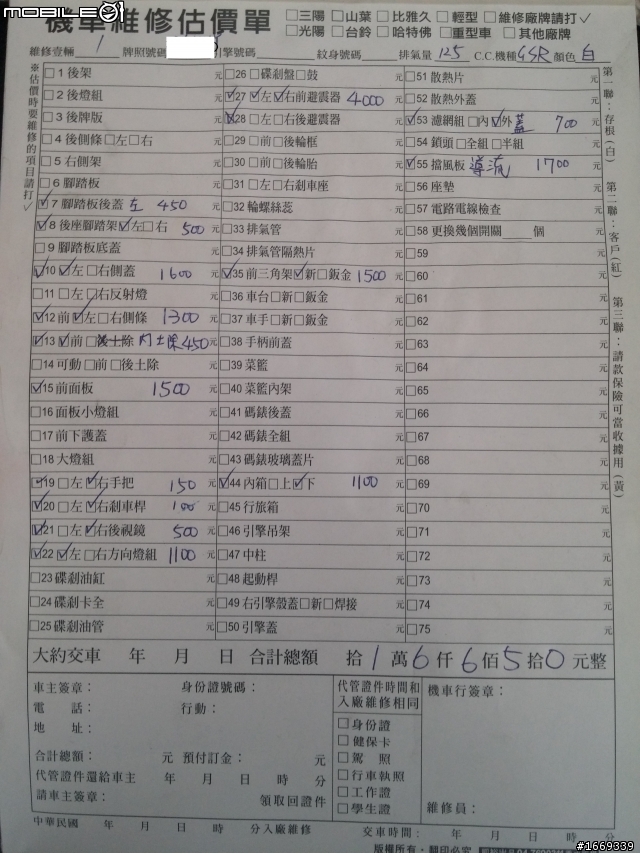 mobile01
機車維修估價單 □三陽 □山葉 □比雅久 □輕型 □維修廠牌請打✓
□光陽 □台鈴 □哈特佛 □重型車 □其他廠牌
維修壹輛 1 牌照號碼 引擎號碼 紋身號碼 排氣量 125 C.C.機種 GSR 顏色 白
※估價時要維修的項目請打✓
□1 後架 元 □26 □碟剎盤□鼓 元 □51 散熱片 元
□2 後燈組 元 ☑27 ☑左☑右前避震器 4000 元 □52 散熱外蓋 元
□3 後牌版 元 ☑28 □左□右後避震器 元 ☑53 濾網組□內☑外 蓋 700 元
□4 後側條□左□右 元 □29 □前□後輪框 元 □54 鎖頭□全組□半組 元
□5 右側架 元 □30 □前□後輪胎 元 ☑55 擋風板 導流 1700 元
□6 腳踏板 元 □31 □左□右剎車座 元 □56 座墊 元
☑7 腳踏板後蓋 左 450 元 □32 輪螺絲蕊 元 □57 電路電線檢查 元
☑8 後座腳踏架☑左□右 500 元 □33 排氣管 元 □58 更換幾個開關 個 元
□9 腳踏板底蓋 元 □34 排氣管隔熱片 元 □59 元
☑10 ☑左□右側蓋 1600 元 ☑35 前三角架☑新□鈑金 1500 元 □60 元
□11 □左□右反射燈 元 □36 車台□新□鈑金 元 □61 元
☑12 前☑左□右側條 1300 元 □37 車手□新□鈑金 元 □62 元
☑13 ☑前□後土除 內土除 450 元 □38 手柄前蓋 元 □63 元
□14 可動□前□後土除 元 □39 菜籃 元 □64 元
☑15 前面板 1500 元 □40 菜籃內架 元 □65 元
□16 面板小燈組 元 □41 碼錶後蓋 元 □66 元
□17 前下護蓋 元 □42 碼錶全組 元 □67 元
□18 大燈組 元 □43 碼錶玻璃蓋片 元 □68 元
☑19 □左☑右手把 150 元 ☑44 內箱□上☑下 1100 元 □69 元
☑20 □左☑右剎車桿 100 元 □45 行旅箱 元 □70 元
☑21 □左☑右後視鏡 500 元 □46 引擎吊架 元 □71 元
☑22 ☑左□右方向燈組 1100 元 □47 中柱 元 □72 元
□23 碟剎油缸 元 □48 起動桿 元 □73 元
□24 碟剎卡全 元 □49 右引擎殼蓋□新□焊接 元 □74 元
□25 碟剎油管 元 □50 引擎蓋 元 □75 元
第一聯：存根(白) 第二聯：客戶(紅) 第三聯：請款保險可當收據用(黃)
大約交車 年 月 日 合計總額 拾 1 萬 6 仟 6 佰 5 拾 0 元整
車主簽章： 身份證號碼： 代管證件時間和 機車行簽章：
電 話： 行動： 入廠維修相同
地 址： □身份證
□健保卡
合計總額： 元 預付訂金： 元 □駕 照
代管證件還給車主 年 月 日 時 分 □行車執照
請車主簽章： 領取回證件 □工作證
□學生證 維修員：
中華民國 年 月 日 時 分入廠維修 交車時間： 年 月 日 時 分
版權所有．翻印必究
#1669339